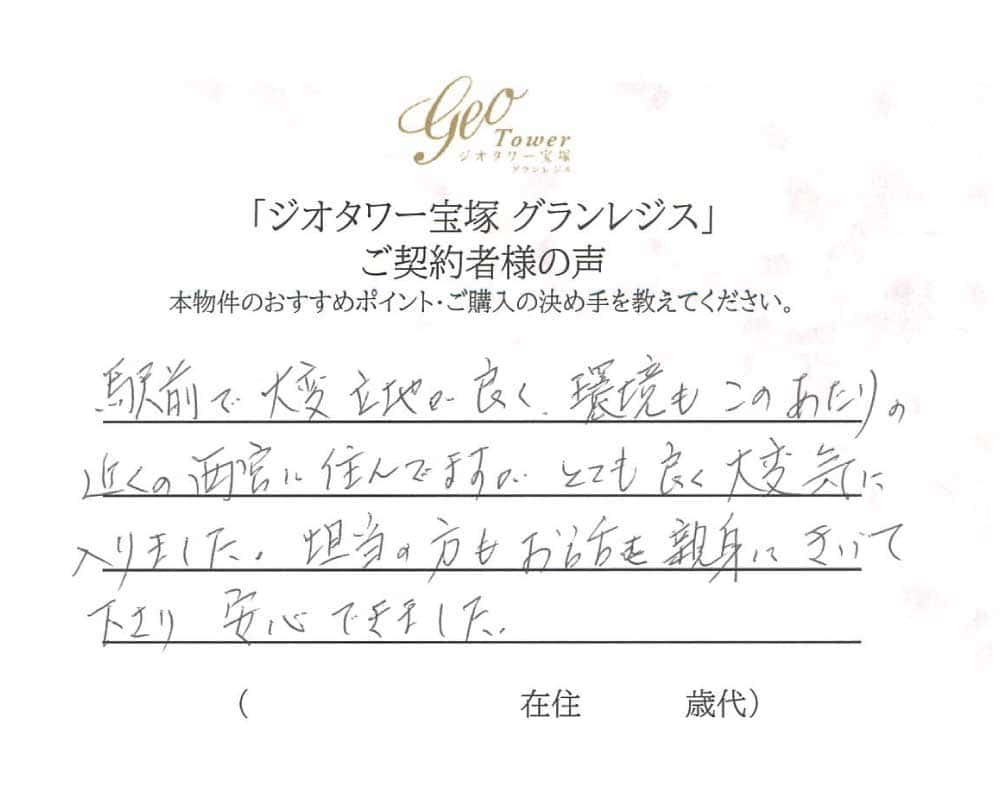 Geo
Tower
ジオタワー宝塚
グランレジス
「ジオタワー宝塚 グランレジス」
ご契約者様の声
本物件のおすすめポイント・ご購入の決め手を教えてください。
駅前で大変立地が良く、環境もこのあたりの
近くの西宮に住んでますが、とても良く大変気に
入りました。担当の方もお話を親身にきいて
下さり安心できました。
( 在住 歳代)